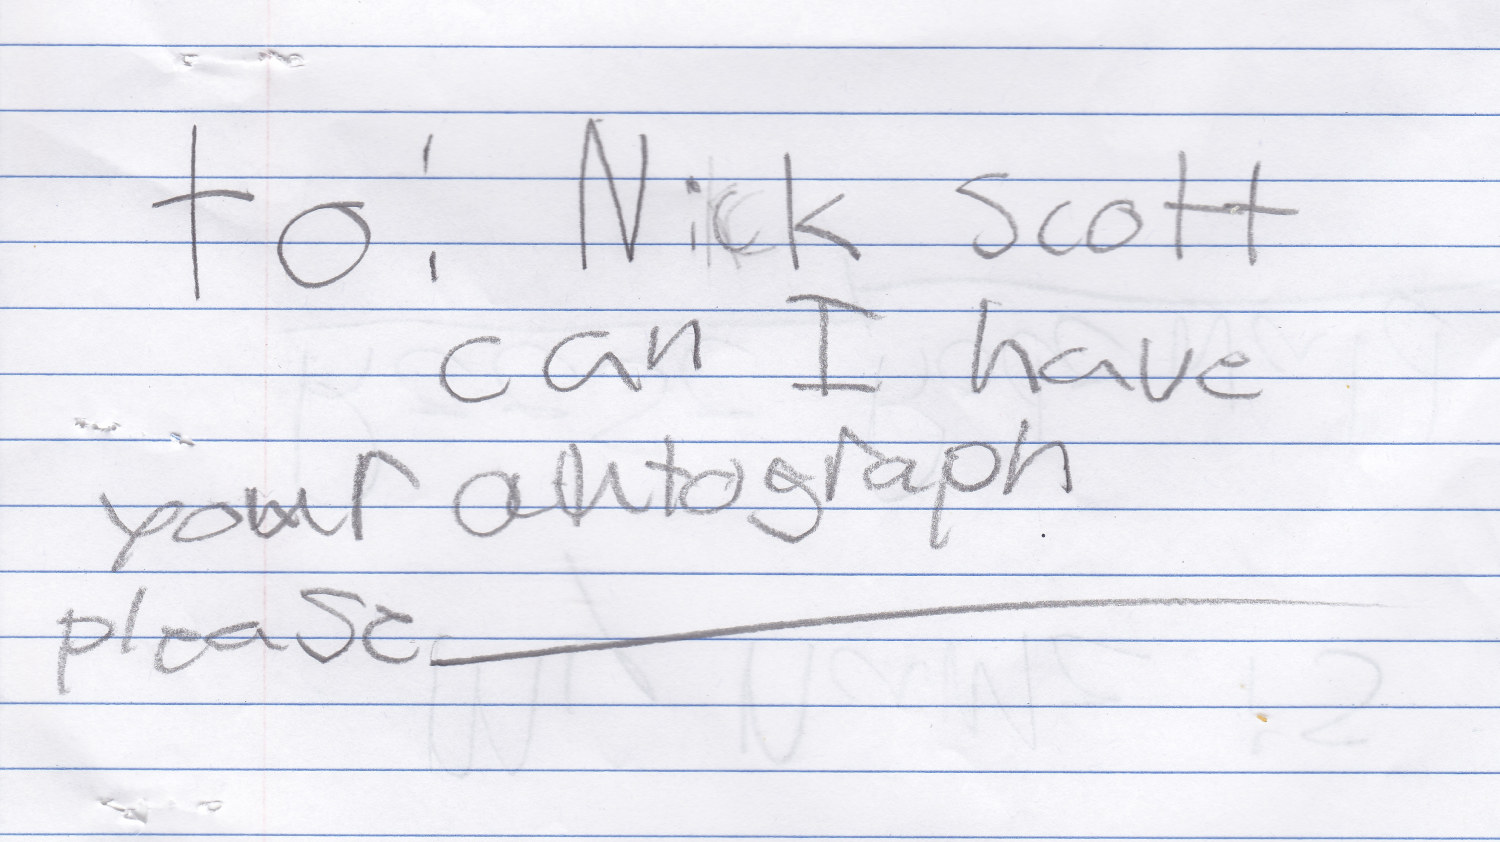 to: Nick Scott
can I have
your autograph
please